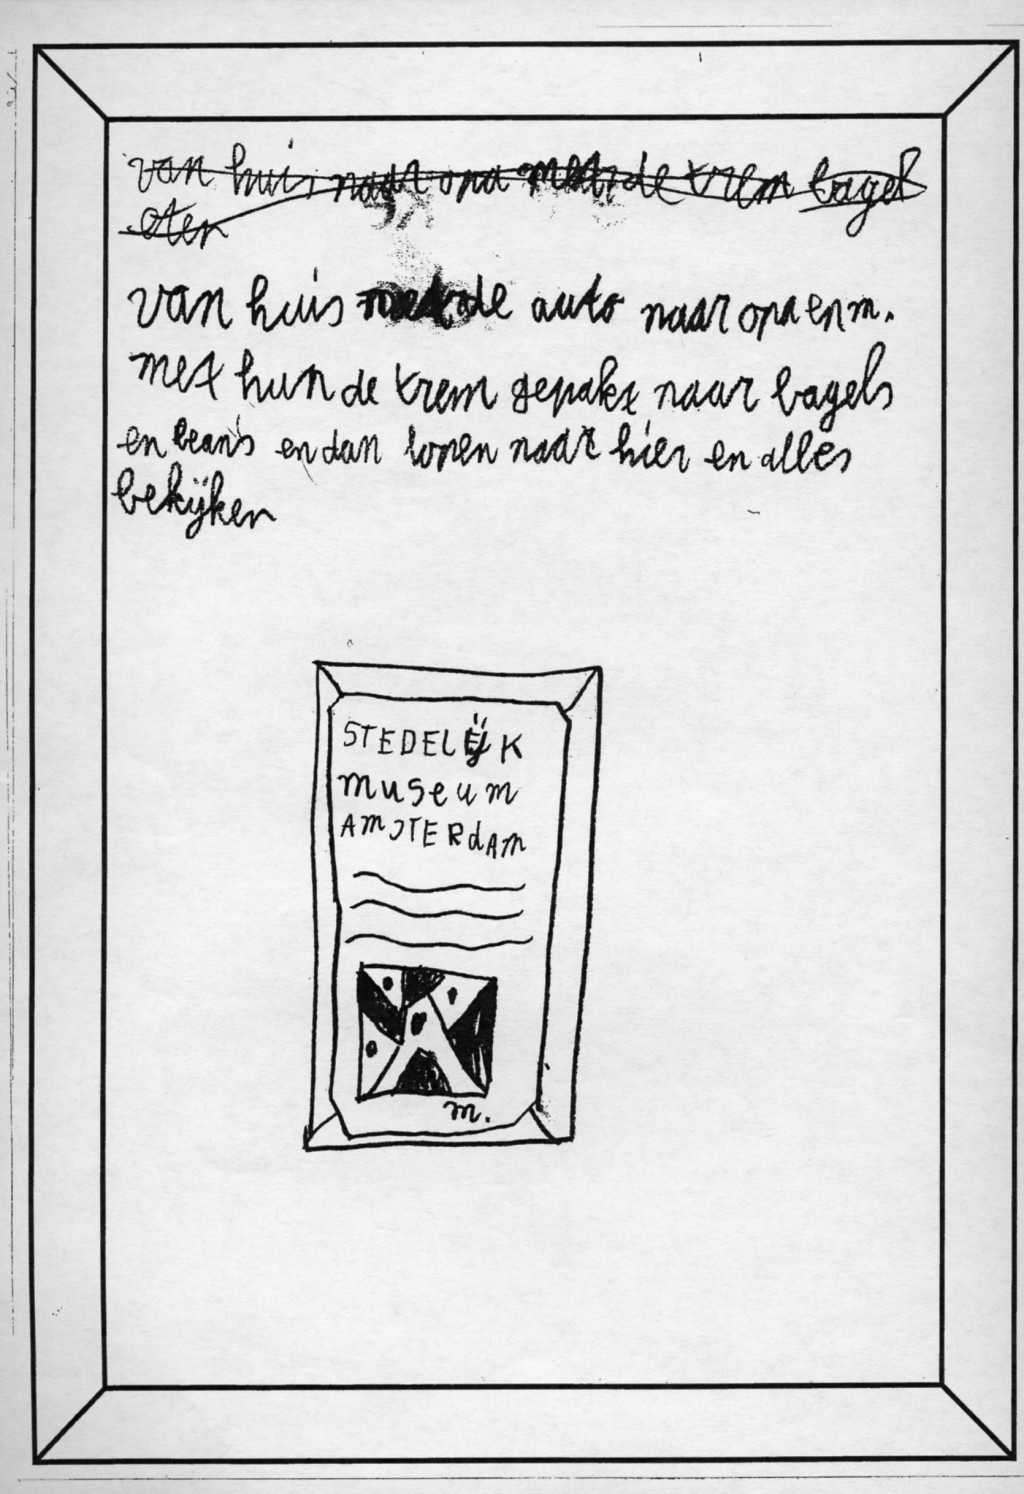 van huis naar opa met de trem bagel
eten
van huis met de auto naar opa en m.
met hun de trem gepakt naar bagels
en beans en dan lopen naar hier en alles
bekijken
STEDELIJK
museum
AMSTERdAM
m.